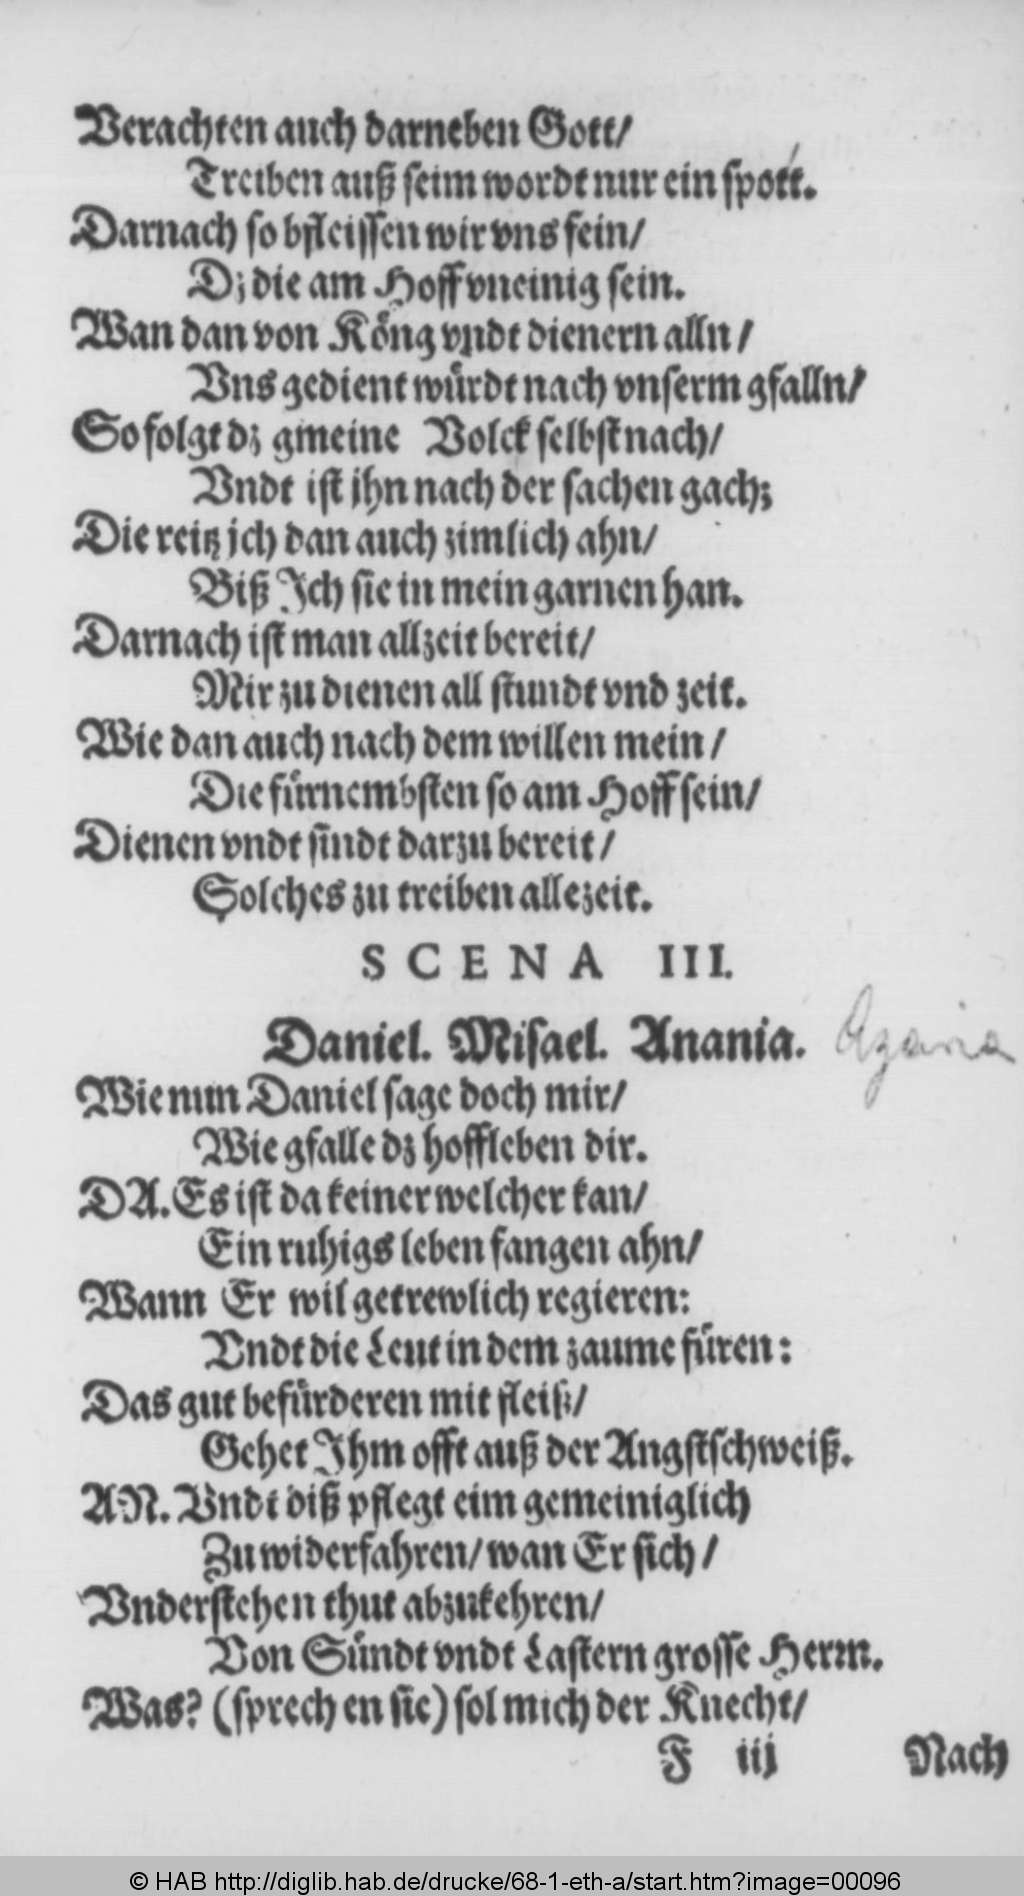 Verachten auch darneben Gott/
Treiben auß seim wordt nur ein spott.
Darnach so bfleissen wir vns fein/
Dz die am Hoff vneinig sein.
Wan dan von Köng vndt dienern alln/
Vns gedient würdt nach vnserm gfalln/
So folgt dz gmeine Volck selbst nach/
Vndt ist jhn nach der sachen gach;
Die reitz jch dan auch zimlich ahn/
Biß Ich sie in mein garnen han.
Darnach ist man allzeit bereit/
Mir zu dienen all stundt vnd zeit.
Wie dan auch nach dem willen mein/
Die fürnembsten so am Hoff sein/
Dienen vndt sindt darzu bereit/
Solches zu treiben allezeit.
SCENA III.
Daniel. Misael. Anania. Azaria
Wie nun Daniel sage doch mir/
Wie gfalle dz hoffleben dir.
DA. Es ist da keiner welcher kan/
Ein ruhigs leben fangen ahn/
Wann Er wil getrewlich regieren:
Vndt die Leut in dem zaume füren:
Das gut befürderen mit fleiß/
Gehet Ihm offt auß der Angstschweiß.
AN. Vndt diß pflegt eim gemeiniglich
Zu widerfahren/ wan Er sich/
Vnderstehen thut abzukehren/
Von Sündt vndt Lastern grosse Herrn.
Was? (sprechen sie) sol mich der Knecht/
F iij Nach
© HAB http://diglib.hab.de/drucke/68-1-eth-a/start.htm?image=00096